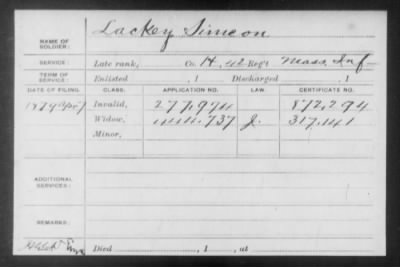 NAME OF SOLDIER: Lackey Simeon
SERVICE: Late rank, Co. H, 42 Reg't Mass. Inf
TERM OF SERVICE: Enlisted , 1 Discharged , 1
DATE OF FILING. CLASS. APPLICATION NO. LAW. CERTIFICATE NO.
1879 Apr 7 Invalid, 277,974 872,294
Widow, 737 J. 317,141
Minor,
ADDITIONAL SERVICES:
REMARKS:
Died , 1 , at